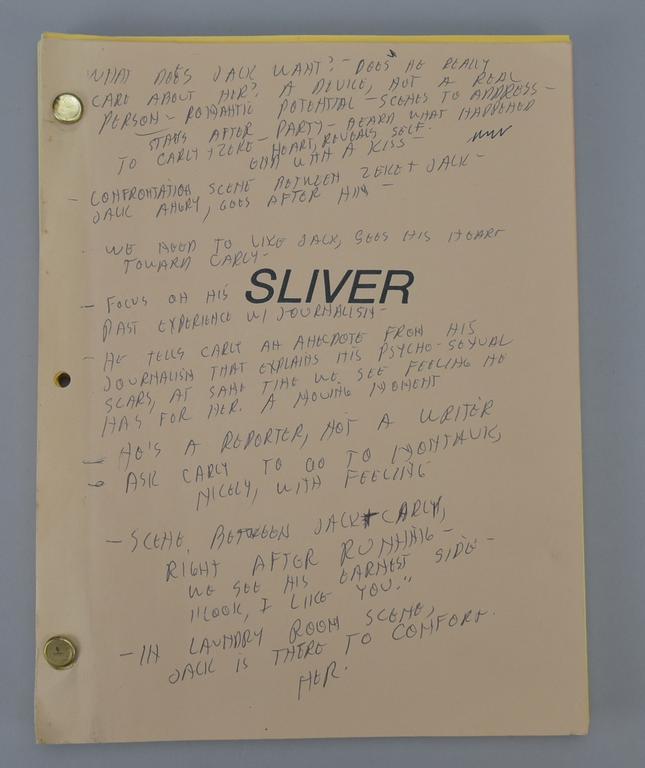 WHAT DOES JACK WANT? - DOES HE REALLY
CARE ABOUT HER? A DEVICE, NOT A REAL
PERSON - ROMANTIC POTENTIAL - SCENES TO ADDRESS -
STAYS AFTER PARTY - HEARD WHAT HAPPENED
TO CARLY + ZEKE - HEART, REVEALS SELF.
END WITH A KISS -
- CONFRONTATION SCENE BETWEEN ZEKE + JACK -
JACK ANGRY, GOES AFTER HIM -
- WE NEED TO LIKE JACK, SEES HIS HEART
TOWARD CARLY -
SLIVER
- FOCUS ON HIS
PAST EXPERIENCE W/ JOURNALISM -
- HE TELLS CARLY AN ANECDOTE FROM HIS
JOURNALISM THAT EXPLAINS HIS PSYCHO-SEXUAL
SCARS, AT SAME TIME WE SEE FEELING HE
HAS FOR HER. A MOVING MOMENT
- HE'S A REPORTER, NOT A WRITER
- ASK CARLY TO GO TO MONTAUK,
NICELY, WITH FEELING
- SCENE BETWEEN JACK + CARLY,
RIGHT AFTER RUNNING -
WE SEE HIS EARNEST SIDE -
"LOOK, I LIKE YOU."
- IN LAUNDRY ROOM SCENE,
JACK IS THERE TO COMFORT.
HER.